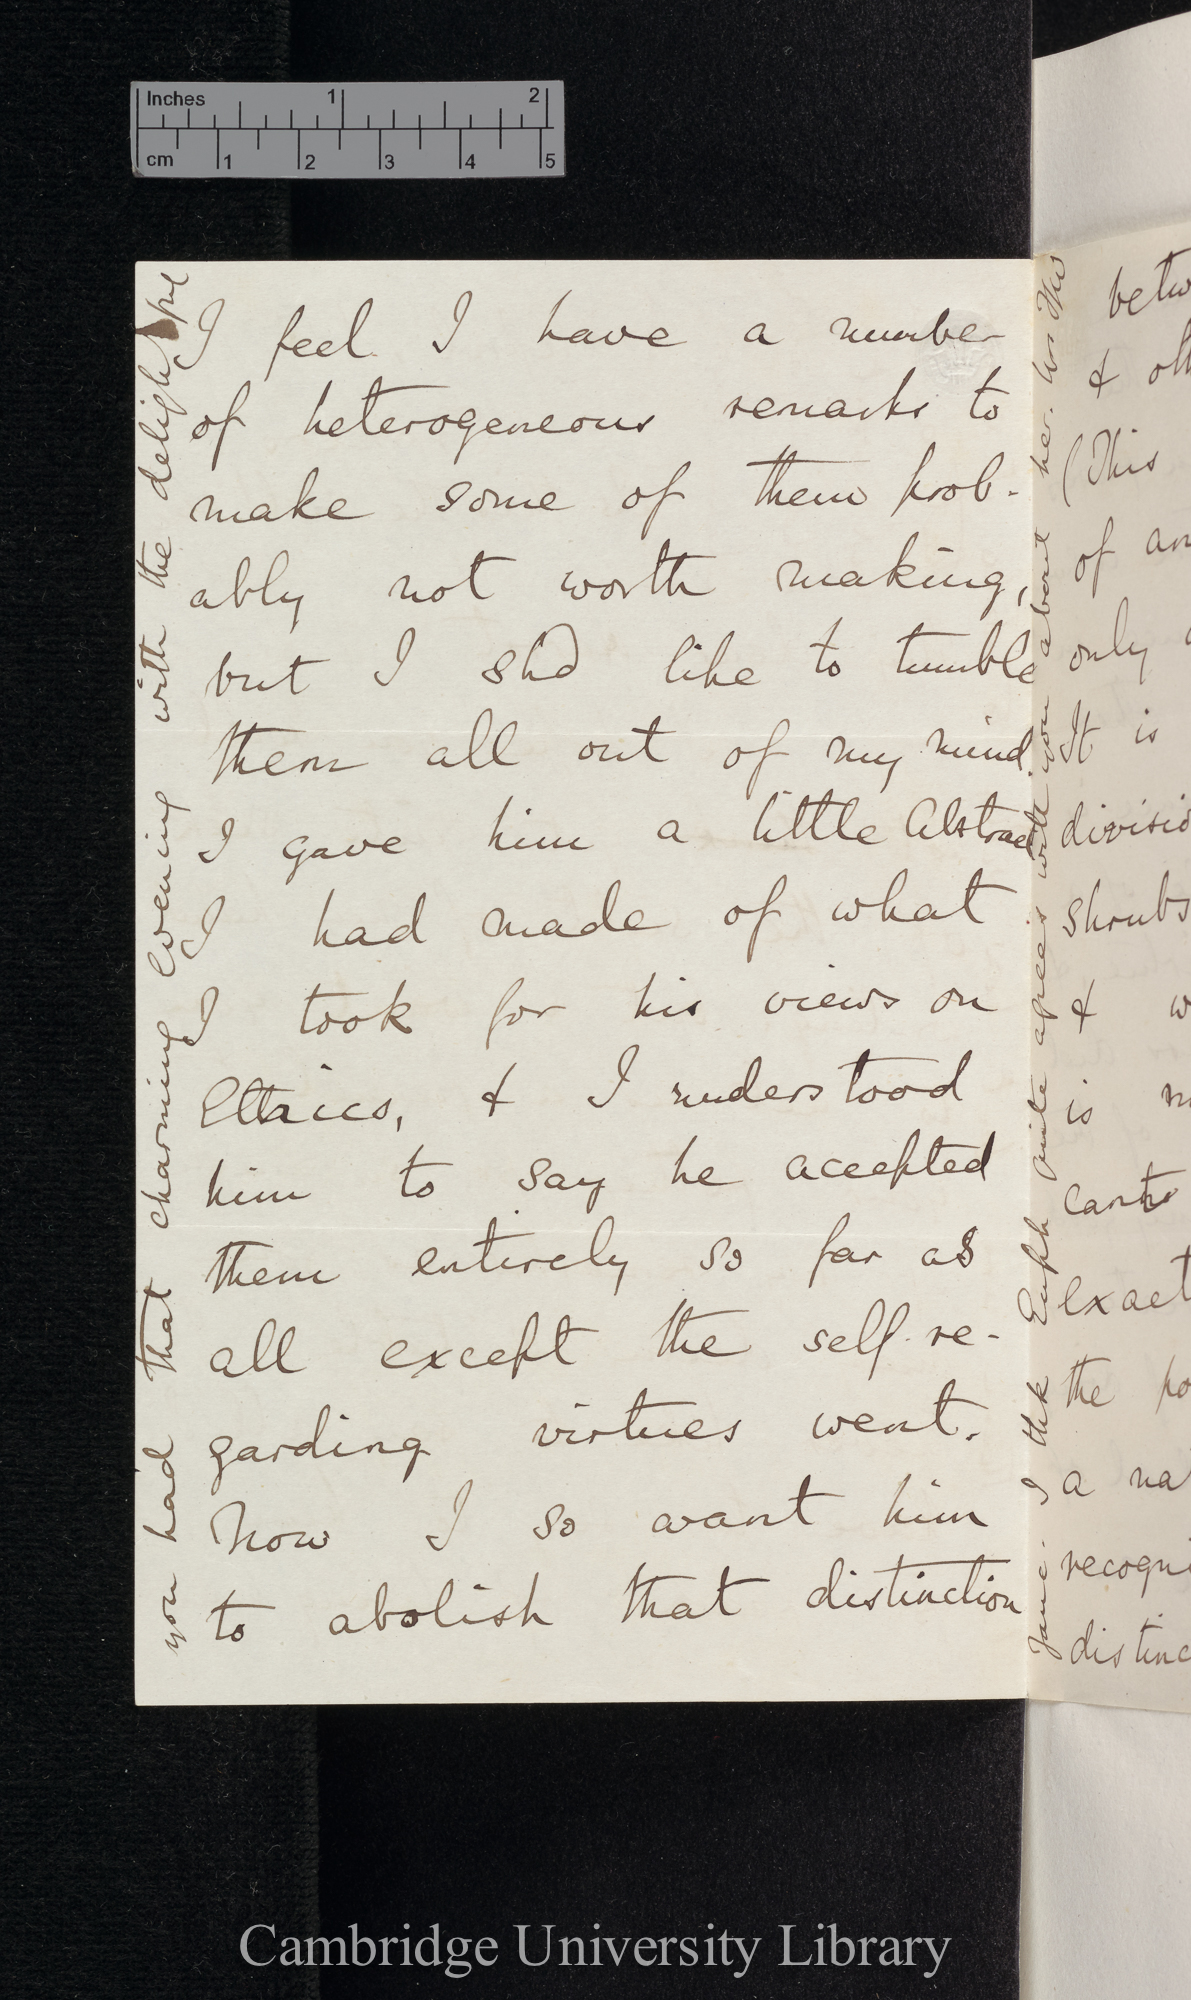 Inches 1 2
cm 1 2 3 4 5
I feel I have a number
of heterogeneous remarks to
make some of them prob-
ably not worth making,
but I shd like to tumble
them all out of my mind.
I gave him a little Abstract
I had made of what
I took for his views on
Ethics, & I understood
him to say he accepted
them entirely so far as
all except the self-re-
garding virtues went.
Now I so want him
to abolish that distinction
you had that charming evening with the delightful
Jane. I thk Euph quite agrees with you about her. Mrs
betw
& oth
(This
of an
only
It is
divisio
shrubs
& w
is
exact
the po
a na
recogni
distinc
Cambridge University Library